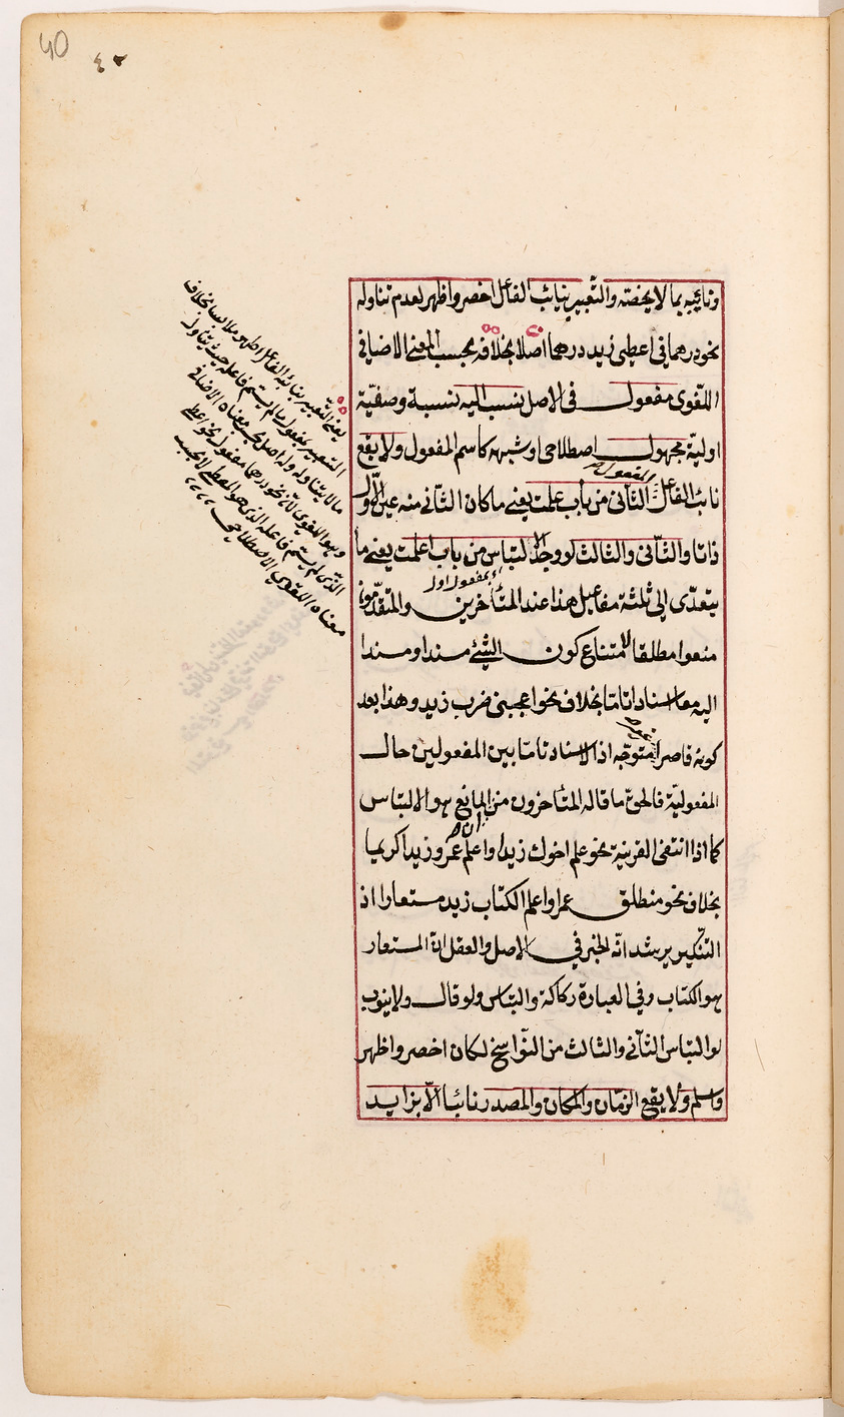 40
٤٠
ونائبه بما لا يخصّه والتعبير بنائب الفاعل اخصر واظهر لعدم تناوله
نحو درهما فى اعطى زيد درهما اصلا بخلافه بحسب المعنى الاضافى
اللغوى مفعول فى الاصل ينسب اليه نسبة وصفيّة
اوليّة مجهول اصطلاحى او شبهه كاسم المفعول ولا يقع
المفعول
نائب الفاعل الثانى من باب علمت يعنى ما كان الثانى منه عين الاول
ذاتا والثّانى والثالث لو وجد الالتباس من باب اعلمت يعنى ما
اى بمفعول اول
يتعدّى الى ثلثة مفاعيل هذا عند المتأخرين والمتقدّمون
منعوا مطلقا لامتناع كون الشئ مسندا ومسندا
اليه معا اسنادا تامّا بخلاف نحو اعجبنى ضرب زيد وهذا بعد
كونه قاصرا متوجه اذ الاسناد تامّا بين المفعولين حال
المفعولية فالحق ما قاله المتأخرون من المانع هو الالتباس
كما اذا انتفى القرينة نحو علم اخوك زيدا واعلم عمرو زيدا كريما
بخلاف نحو منطلق عمرا واعلم الكتاب زيد مستعارا اذ
التنكير يرشد انّه الخبر فى الاصل والعقل انّ المستعار
هو الكتاب وفى العبارة ركاكة والتباس ولو قال ولا ينوب
لو التباس الثّانى والثالث من النّواسخ لكان اخصر واظهر
واسلم ولا يقع الزمان والمكان والمصدر نائبا الاّ بزايد
يعنى التّعبير بنائب الفاعل اظهر بخلاف
التعبير بمفعول مالم يسمّ فاعله حيث يتناول
مالا يتناوله وله اصل بحسب معناه الاضافى
وهو اللغوى لانّ نحو درهما مفعول نحو اعطى
الذى لم يسمّ فاعله الذى هو المعطى لا بحسب
معناه اللقبى الاصطلاحى